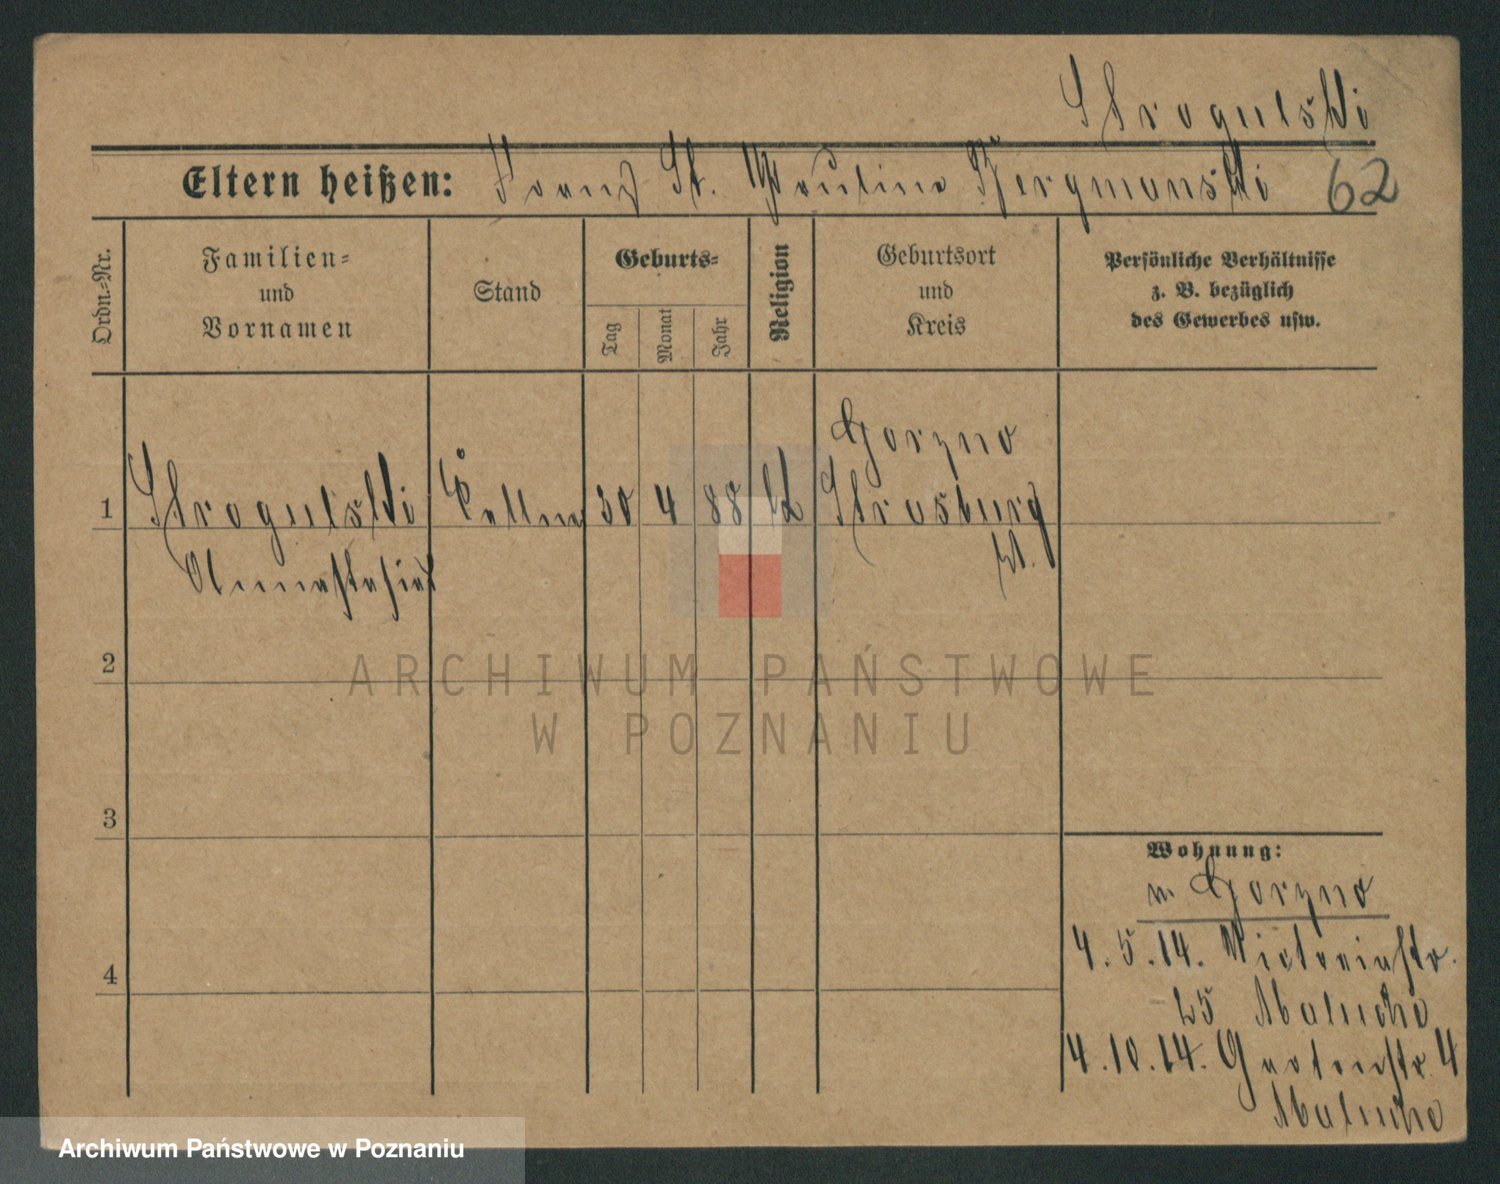 Strogulski
Eltern heißen: Franz St. Paulina Bergmanski 62
Ordn.-Nr.
Familien-
und
Vornamen
Stand
Geburts-
Tag
Monat
Jahr
Religion
Geburtsort
und
Kreis
Persönliche Verhältnisse
z. B. bezüglich
des Gewerbes usw.
Gorzno
1 Strogulski 30 4 88 Strasburg
2
3
4
Wohnung:
Gorzno
4.5.14. Victoriastr.
25
4.10.14. Gartenstr. 4
ARCHIWUM PAŃSTWOWE
W POZNANIU
Archiwum Państwowe w Poznaniu